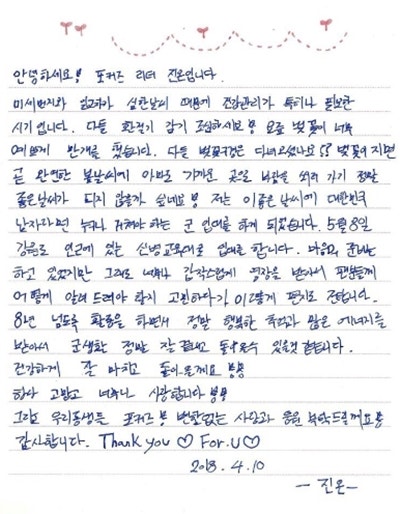 안녕하세요! 포커즈 리더 진온입니다.
미세먼지와 일교차가 심한날씨 때문에 건강관리가 특히나 필요한
시기 입니다. 다들 환절기 감기 조심하세요! 요즘 벚꽃이 너무
예쁘게 만개를 했습니다. 다들 벚꽃구경은 다녀오셨나요?? 벚꽃이 지면
곧 완연한 봄날씨에 아마도 가까운 곳으로 바람을 쐬러 가기 정말
좋은날씨가 되지 않을까 싶네요! 저는 이좋은 날씨에 대한민국
남자라면 누구나 거쳐야 하는 군 입대를 하게 되었습니다. 5월 8일
강원도 인근에 있는 신병교육대로 입대를 합니다. 마음의 준비는
하고 있었지만 그래도 너무나 갑작스럽게 영장을 받아서 팬분들께
어떻게 알려 드려야 할지 고민하다가 이렇게 편지로 전합니다.
8년 넘도록 활동을 하면서 정말 행복한 추억과 많은 에너지를
받아서 군생활 정말 잘 끝내고 돌아올수 있을것 같습니다.
건강하게 잘 마치고 돌아올게요!!
항상 고맙고 너무나 사랑합니다!!
그리고 우리동생들 포커즈! 변함없는 사랑과 응원 부탁드릴께요!
감사합니다. Thank you ♡ For.U♡
2018. 4. 10
- 진온 -